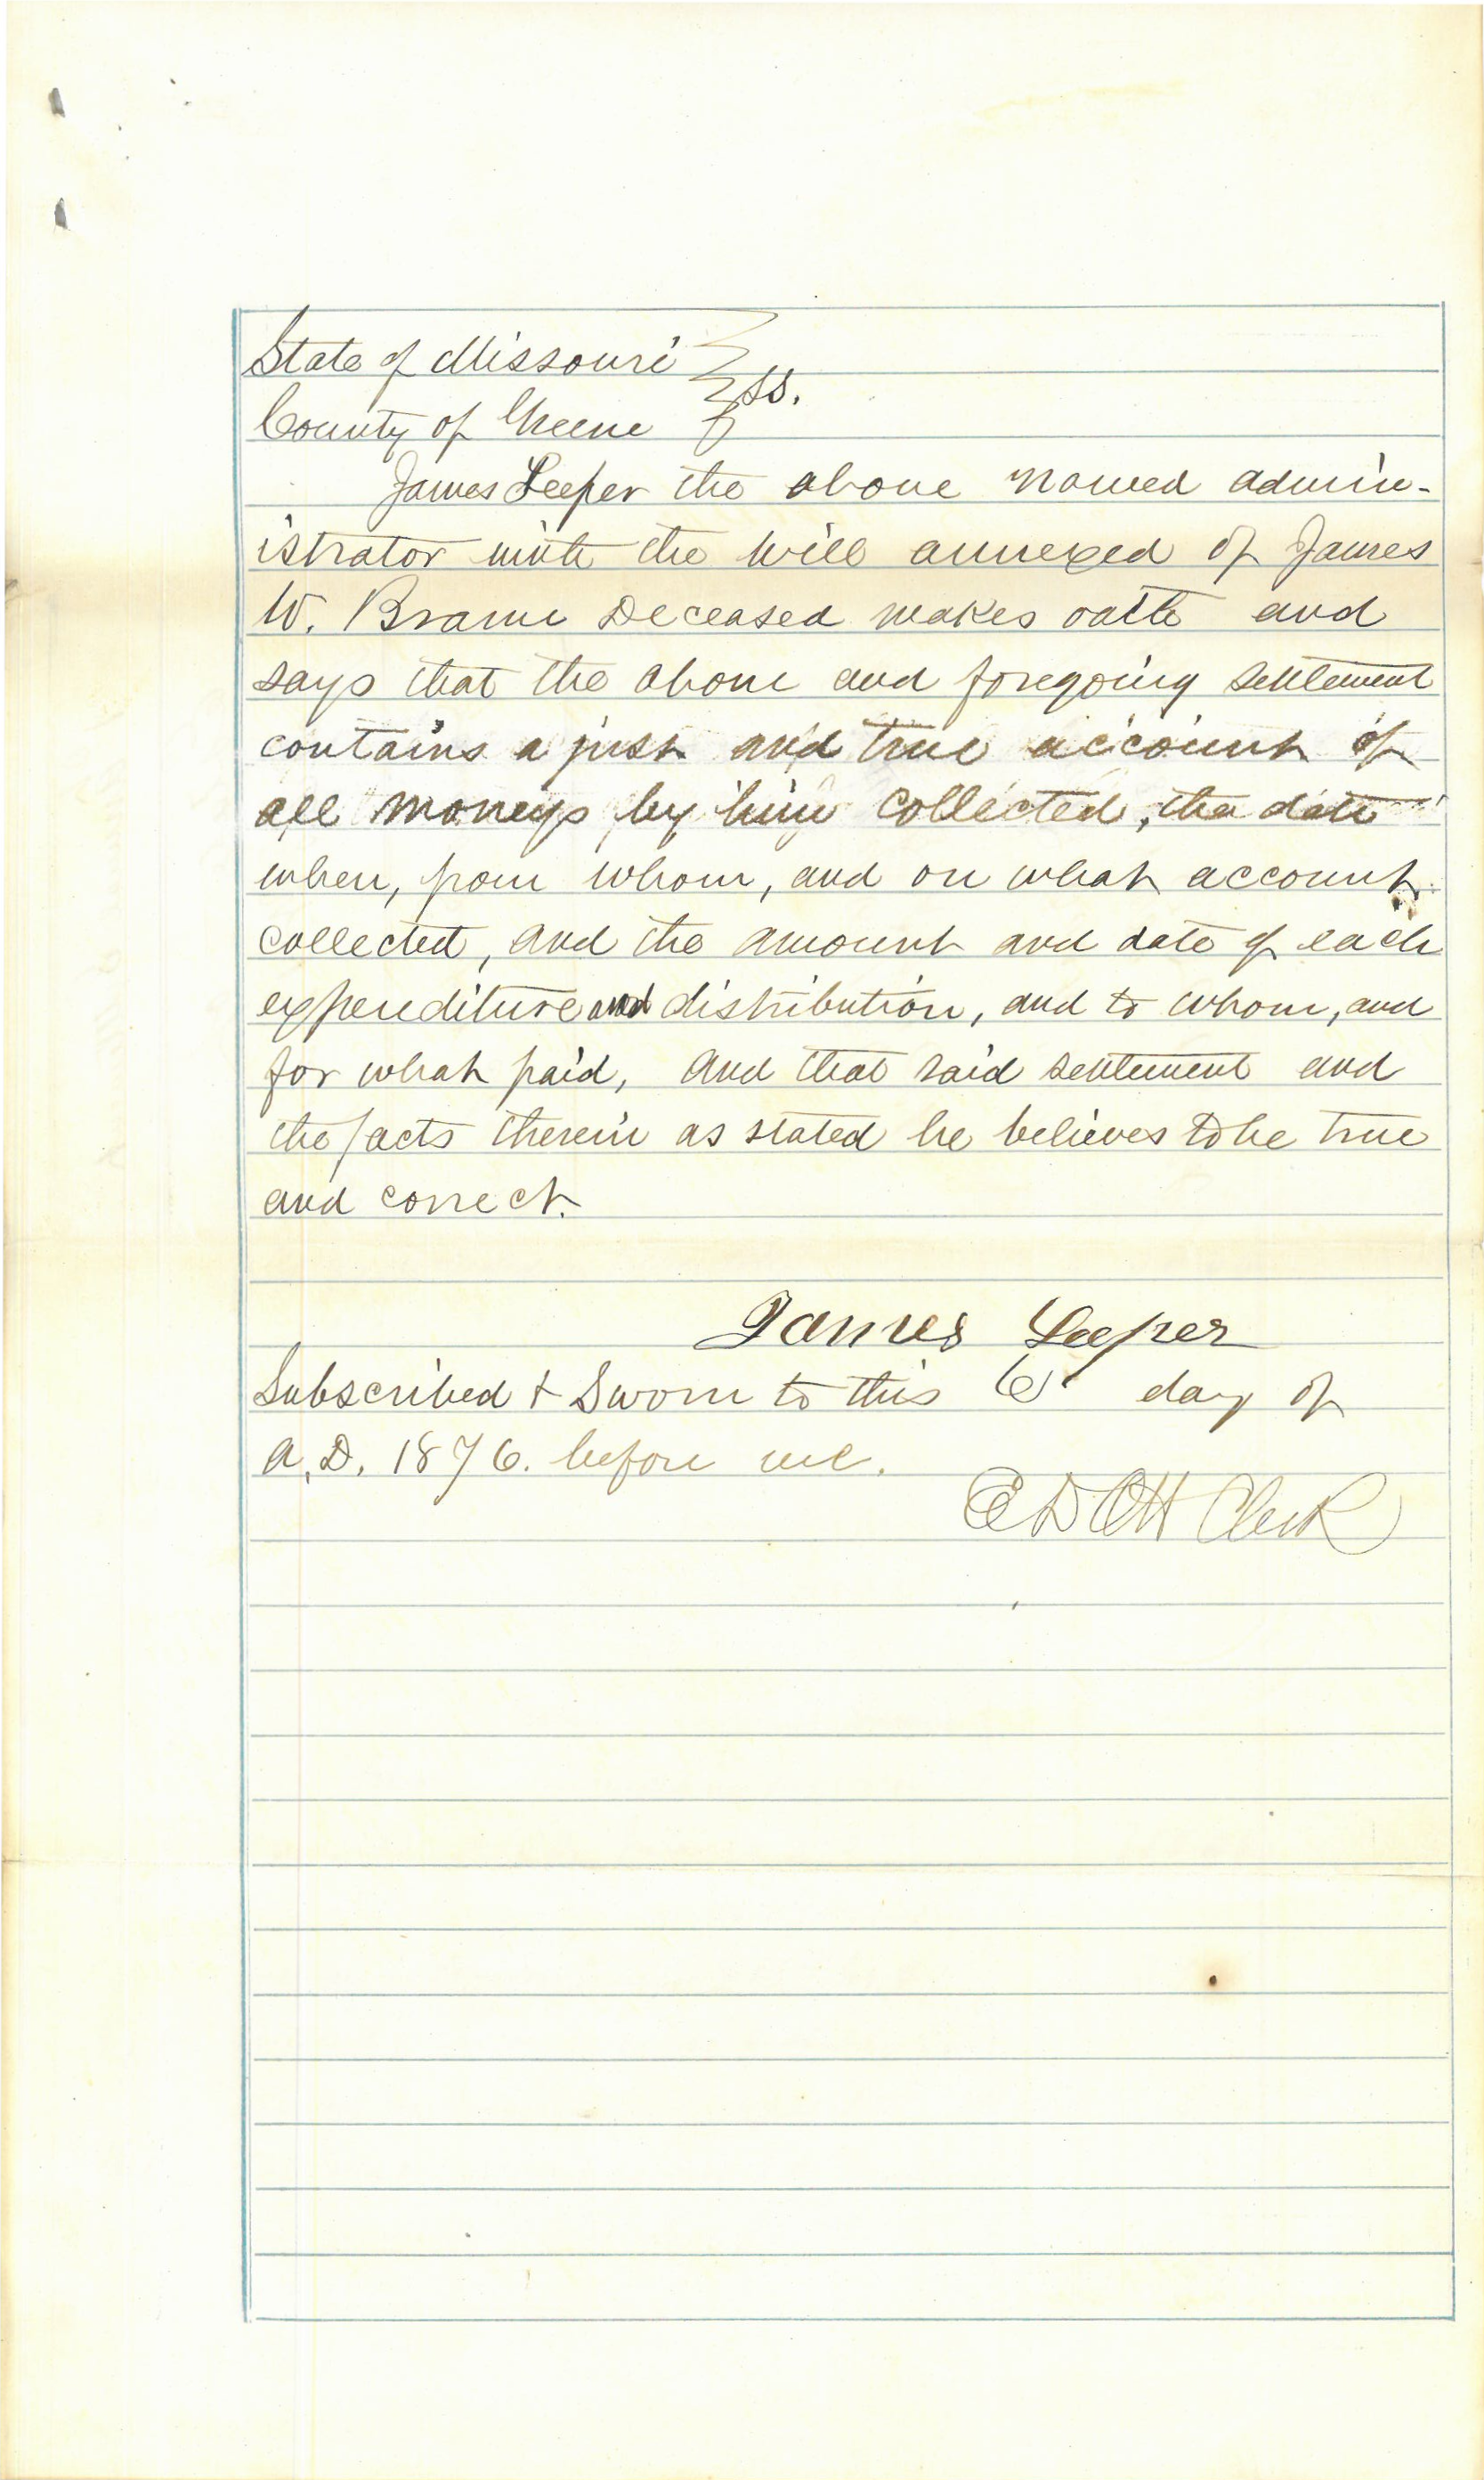 State of Missouri } ss.
County of Greene }
James Leeper the above named admin-
istrator with the will annexed of James
W. Brame Deceased makes oath and
says that the above and foregoing settlement
contains a just and true account of
all moneys by him collected, the date
when, from whom, and on what account
collected, and the amount and date of each
expenditure and distribution, and to whom, and
for what paid, and that said settlement and
the facts therein as stated he believes to be true
and correct.
James Leeper
Subscribed & Sworn to this 6 day of
A.D. 1876. before me.
E D Ott Clerk